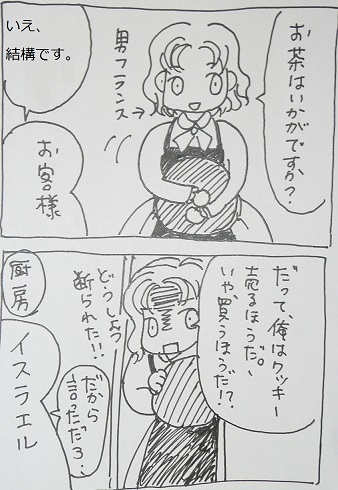 お茶はいかがですか？
男フランス→
いえ、
結構です。
お客様
だって、俺はクッキー
売るほうだ。、
いや買うほうだ!?
どうしよう
断られた!!
だから
言っただろ、
厨房
イスラエル